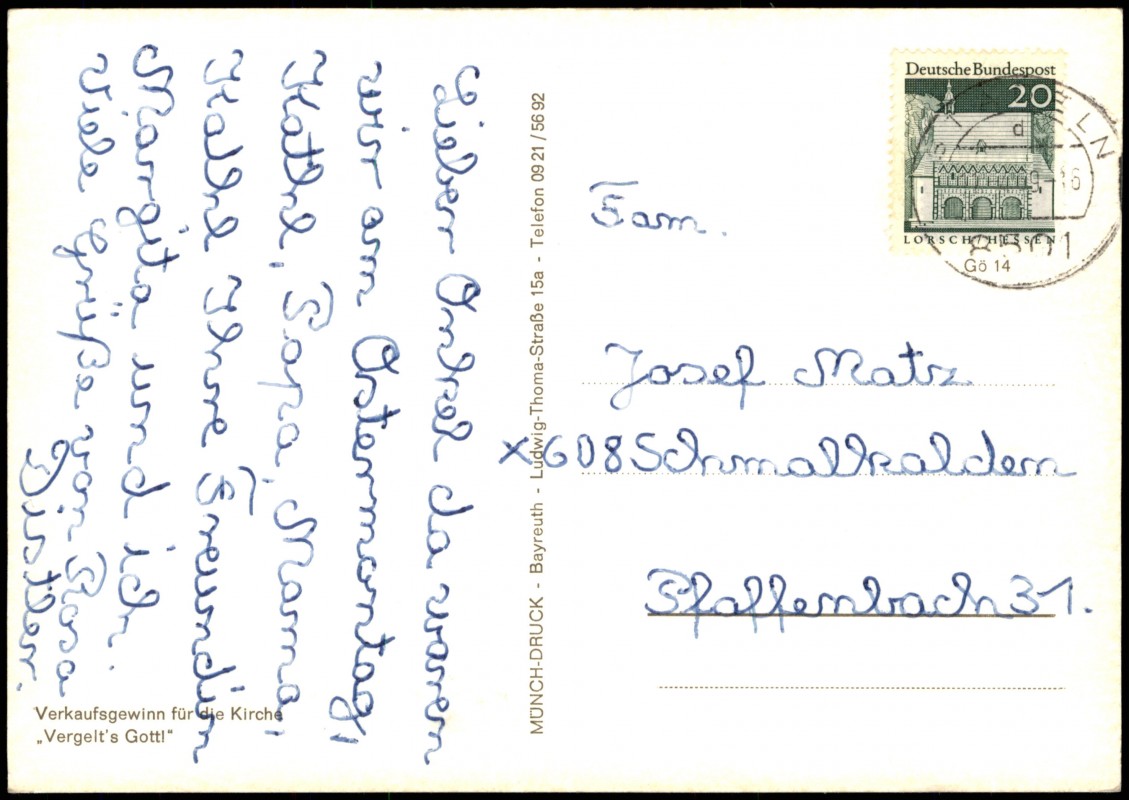 Lieber Onkel da waren
wir am Ostermontag,
Kathl, Papa, Mama,
Kathl Ihre Freundin
Margita und ich.
Viele Grüße von Rosa
Distler.
Verkaufsgewinn für die Kirche
„Vergelt's Gott!“
MÜNCH-DRUCK - Bayreuth - Ludwig-Thoma-Straße 15a - Telefon 09 21 / 56 92
Deutsche Bundespost
20
LORSCH/HESSEN
Gö 14
Fam.
Josef Matz
X608 Schmalkalden
Pfaffenbach 31.